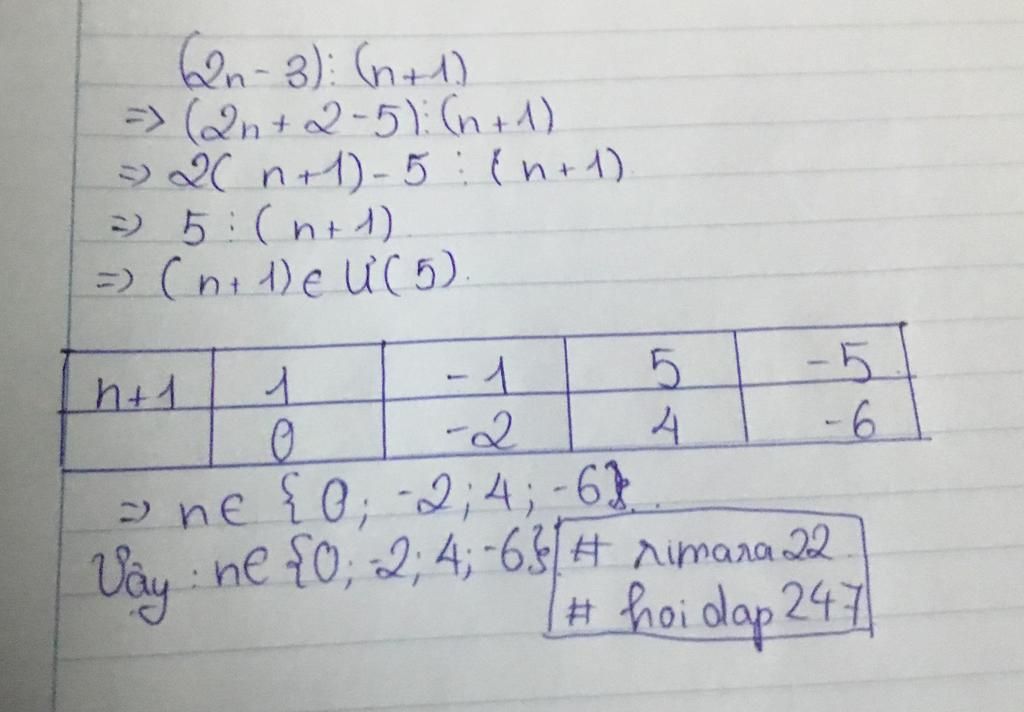 (2n - 3) ⋮ (n+1)
=> (2n + 2 - 5) ⋮ (n + 1)
=> 2( n+1) - 5 ⋮ ( n + 1)
=> 5 ⋮ ( n + 1)
=> ( n + 1) ∈ Ư(5).
n+1 1 -1 5 -5
0 -2 4 -6
=> n ∈ {0; -2; 4; -6}.
Vậy : n ∈ {0; -2; 4; -6}
# rimara22
# hoidap247